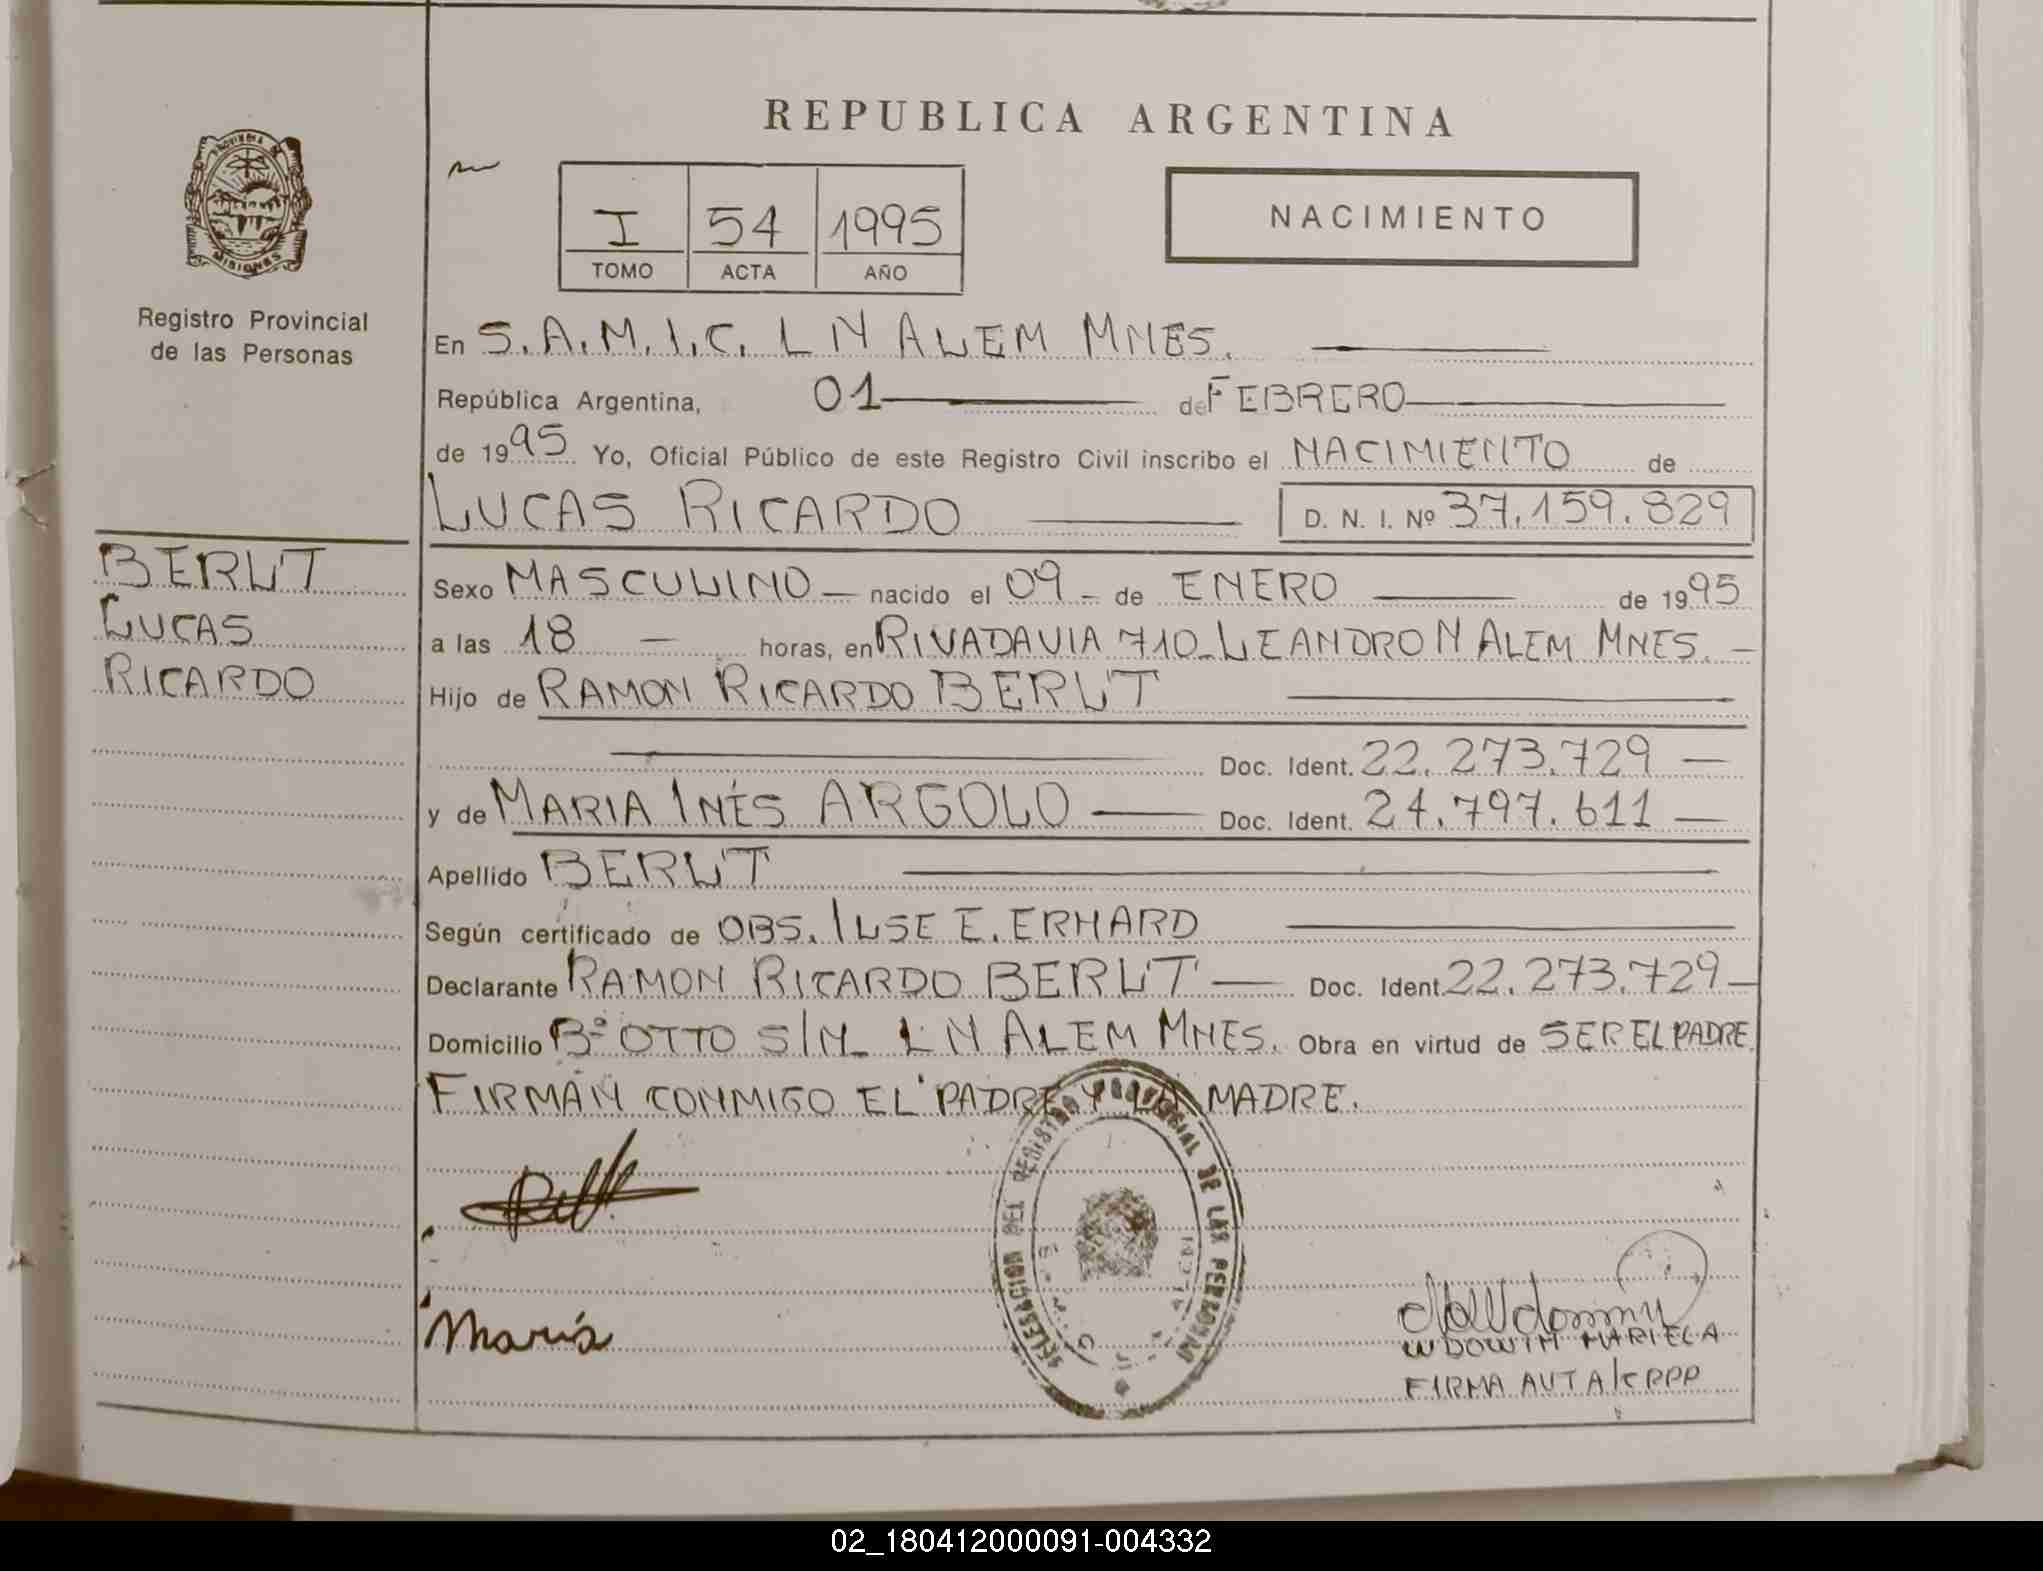 REPUBLICA ARGENTINA
PROVINCIA DE
MISIONES
Registro Provincial
de las Personas
I 54 1995
TOMO ACTA AÑO
NACIMIENTO
En S.A.M.I.C. L N ALEM MNES.
República Argentina, 01 de FEBRERO
de 1995 Yo, Oficial Público de este Registro Civil inscribo el NACIMIENTO de
LUCAS RICARDO D. N. I. Nº 37.159.829
BERLT
LUCAS
RICARDO
Sexo MASCULINO nacido el 09 de ENERO de 1995
a las 18 horas, en RIVADAVIA 710_LEANDRO N ALEM MNES.
Hijo de RAMON RICARDO BERLT
Doc. Ident. 22.273.729
y de MARIA INÉS ARGOLO Doc. Ident. 24.797.611
Apellido BERLT
Según certificado de OBS. ILSE E. ERHARD
Declarante RAMON RICARDO BERLT Doc. Ident. 22.273.729
Domicilio Bº OTTO S/N_ L N ALEM MNES. Obra en virtud de SER EL PADRE.
FIRMAN CONMIGO EL PADRE Y LA MADRE.
DELEGACION DEL REGISTRO PROVINCIAL DE LAS PERSONAS
María
MARIELA
FIRMA AUT A/C RPPP
02_180412000091-004332